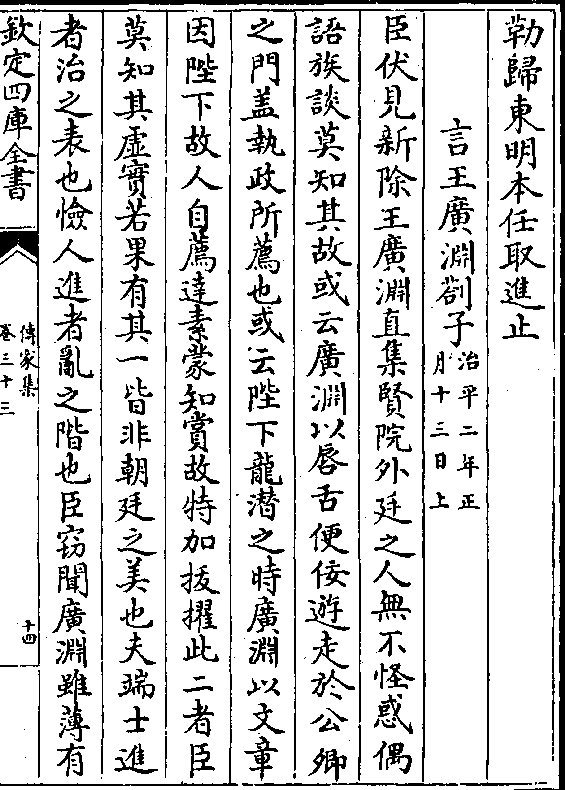 勒歸東明本任取進止
言王廣淵劄子治平二年正月十三日上
臣伏見新除王廣淵直集賢院外廷之人無不怪惑偶
語族談莫知其故或云廣淵以唇舌便佞遊走於公卿
之門盖執政所薦也或云陛下龍潜之時廣淵以文章
因陛下故人自薦達素蒙知賞故特加拔擢此二者臣
莫知其虛實若果有其一皆非朝廷之美也夫端士進
者治之表也憸人進者亂之階也臣竊聞廣淵雖薄有
欽定四庫全書
傳家集
卷三十三
十四